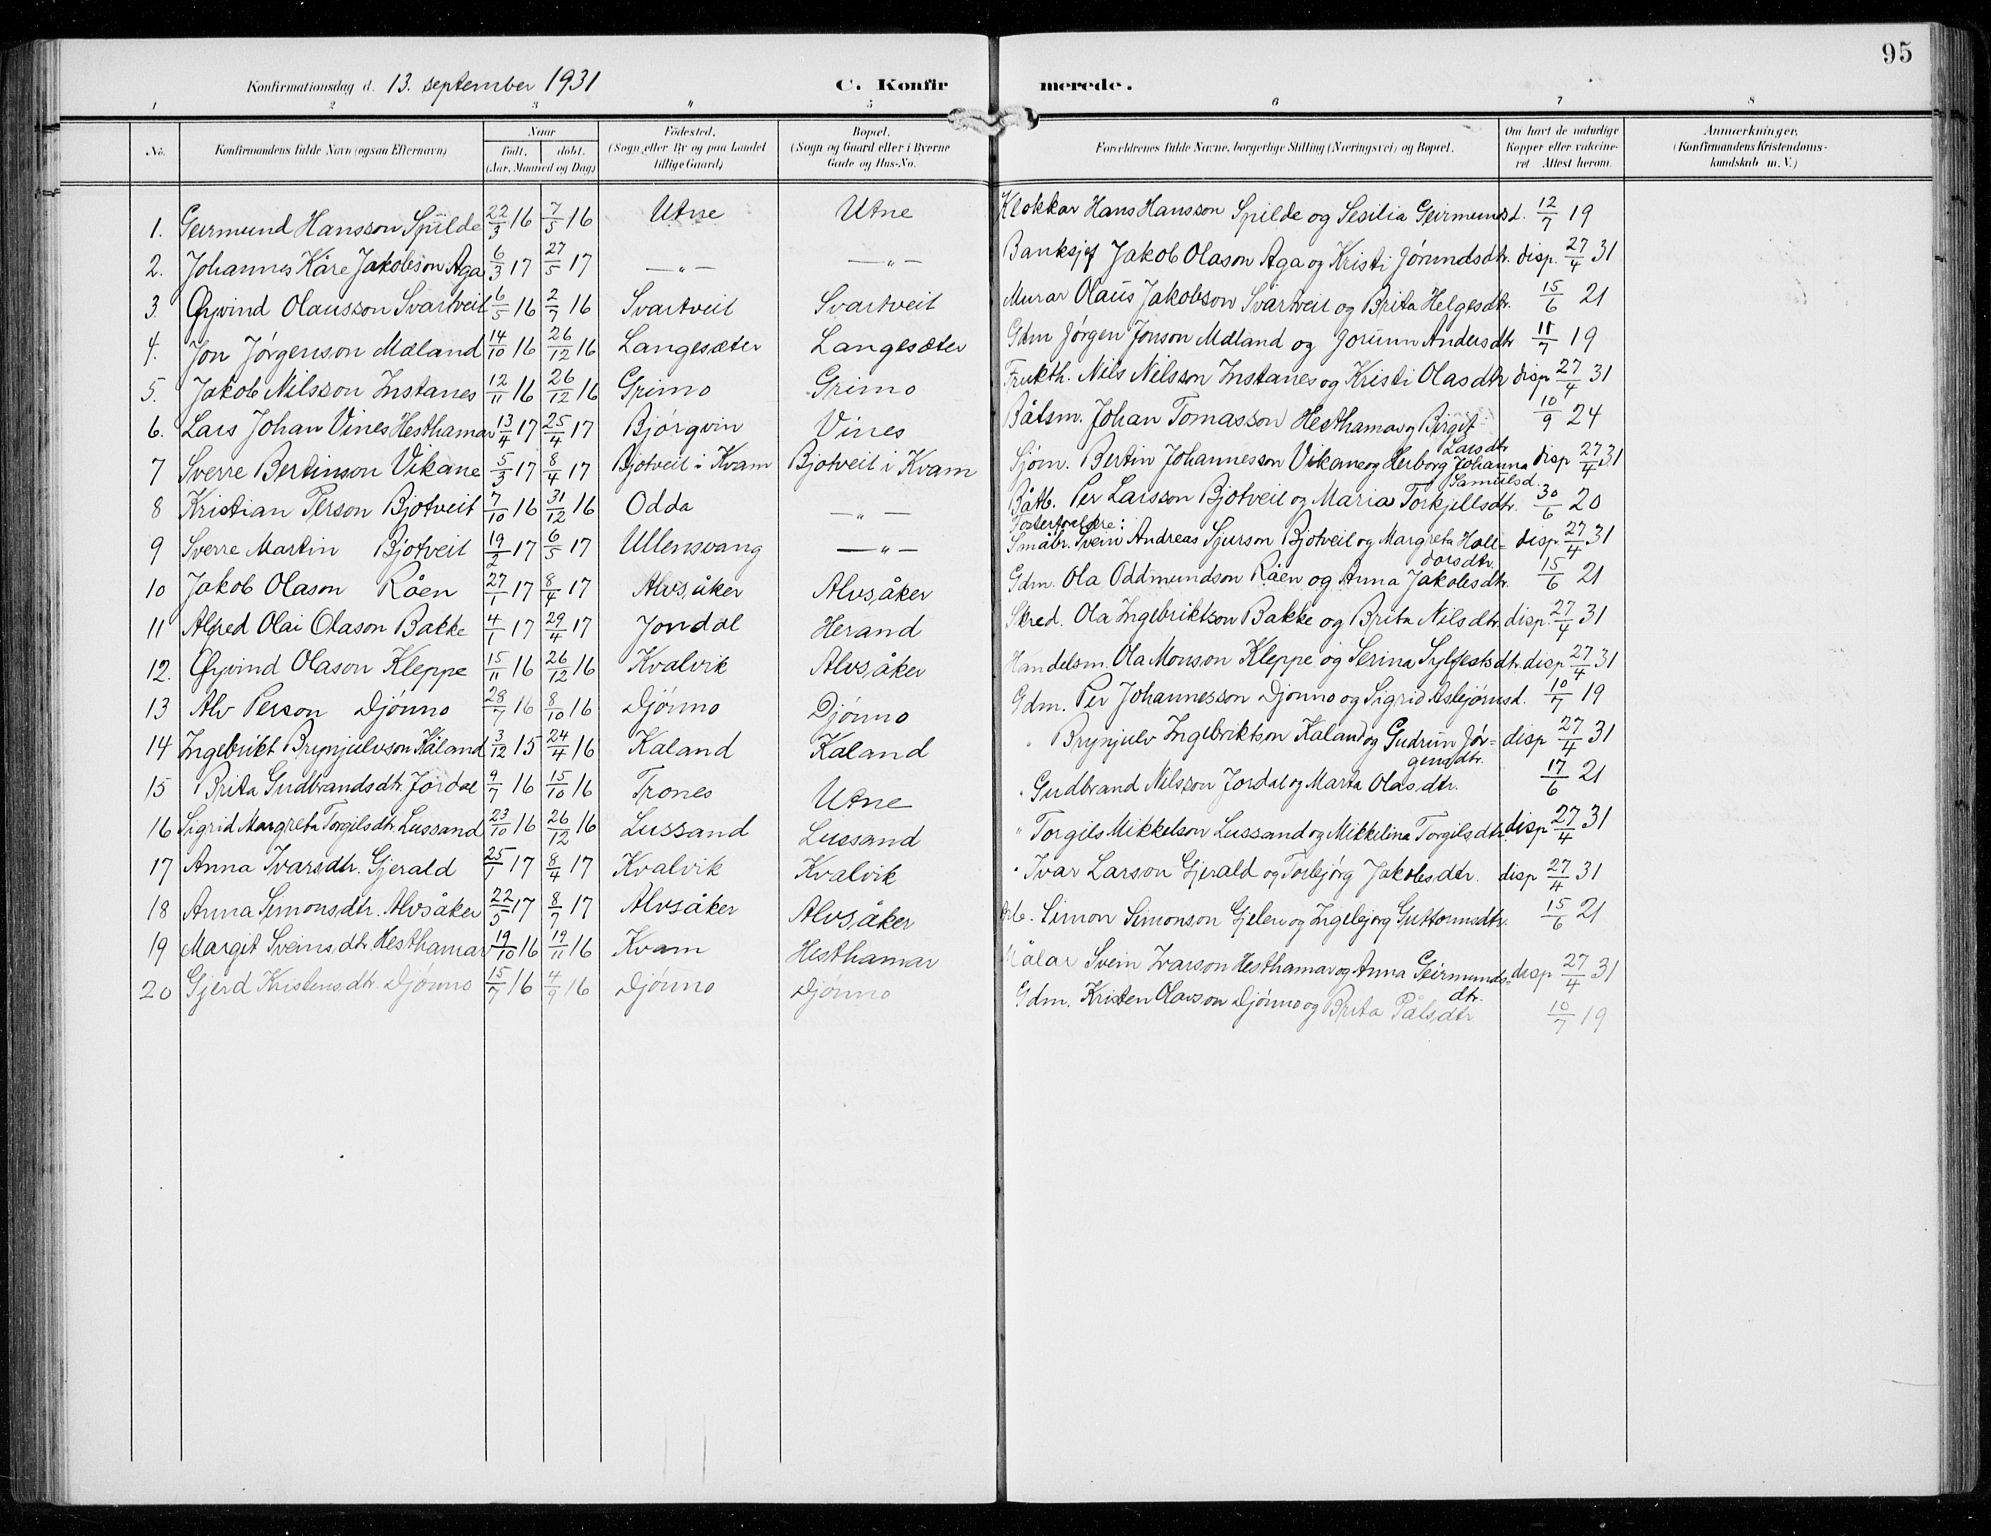 95
Konfirmationsdag d. 13. september 1931 C. Konfirmerede.
1 2 3 " 5 6 7 8
No. Konfirmandens fulde Navn (ogsaa Efternavn) Naar født, døbt. (Aar, Maaned og Dag) Fødested. (Sogn eller By og paa Landet tillige Gaard) Bopæl. (Sogn og Gaard eller i Byerne Gade og Hus-No. Forældrenes fulde Navne, borgerlige Stilling (Næringsvei) og Bopæl. Om havt de naturlige Kopper eller vakcineret Attest herom. Anmærkninger. (Konfirmandens Kristendomskundskab m. V.)
1. Geirmund Hansson Spilde 22/3 16 7/5 16 Utne Utne Klokkar Hans Hansson Spilde og Sesilia Geirmundsd. 12/7 19
2. Johannes Kåre Jakobson Aga 6/3 17 27/5 17 — " — — " — Banksjef Jakob Olason Aga og Kristi Jørundsdtr. disp. 27/4 31
3. Øyvind Olausson Svartveit 6/5 16 2/7 16 Svartveit Svartveit Murar Olaus Jakobson Svartveit og Brita Helgesdtr. 15/6 21
4. Jon Jørgenson Mæland 14/10 16 26/12 16 Langesæter Langesæter Gdm Jørgen Jonson Mæland og Jorunn Andersdtr 11/7 19
5. Jakob Nilsson Instanes 12/11 16 26/12 16 Grimo Grimo Frukth. Nils Nilsson Instanes og Kristi Olasdtr disp 27/4 31
6. Lars Johan Vines Hesthamar 13/4 17 25/4 17 Bjørgvin Vines Båtsm. Johan Tomasson Hesthamar og Birgit Larsdtr 10/9 24
7 Sverre Bertinson Vikane 5/3 17 8/4 17 Bjotveit i Kvam Bjotveit i Kvam Sjøm. Bertin Johannesson Vikane og Herborg Johanna Samuelsd. disp 27/4 31
8 Kristian Person Bjotveit 7/10 16 31/12 16 Odda — " — Båtb. Per Larsson Bjotveit og Maria Torkjellsdtr. 30/6 20
9 Sverre Martin Bjotveit 19/2 17 6/5 17 Ullensvang — " — Fosterforeldre: Småbr. Svein Andreas Sjurson Bjotveit og Margreta Halldorsdtr. disp. 27/4 31
10 Jakob Olason Råen 27/1 17 8/4 17 Alvsåker Alvsåker Gdm. Ola Oddmundson Råen og Anna Jakobsdtr. 15/6 21
11 Alfred Olai Olason Bakke 4/1 17 29/4 17 Jondal Herand Skred. Ola Ingebriktson Bakke og Brita Nilsdtr. disp. 27/4 31
12. Øyvind Olason Kleppe 15/11 16 26/12 16 Kvalvik Alvsåker Handelsm. Ola Monson Kleppe og Serina Sylfestsdtr. disp 27/4 31
13 Alv Person Djønno 28/7 16 8/10 16 Djønno Djønno Gdm. Per Johannesson Djønno og Sigrid Asbjørnsd. 10/7 19
14 Ingebrikt Brynjulvson Kåland 3/12 15 24/4 16 Kaland Kaland " Brynjulv Ingebriktson Kaland og Gudrun Jørgensdtr. disp 27/4 31
15 Brita Gudbrandsdtr. Jordal 9/7 16 15/10 16 Trones Utne " Gudbrand Nilsson Jordal og Marta Olasdtr. 17/6 21
16 Sigrid Margreta Torgilsdtr. Lussand 23/10 16 26/12 16 Lussand Lussand " Torgils Mikkelson Lussand og Mikkelina Torgilsdtr. disp 27/4 31
17 Anna Ivarsdtr. Gjerald 25/1 17 8/4 17 Kvalvik Kvalvik " Ivar Larson Gjerald og Torbjørg Jakobsdtr. disp 27/4 31
18 Anna Simonsdtr. Alvsåker 22/5 17 8/7 17 Alvsåker Alvsåker Simon Simonson Gjelen og Ingebjørg Guttormsdtr. 15/6 21
19 Margit Sveinsdtr. Hesthamar 19/10 16 19/11 16 Kvam Hesthamar Målar Svein Ivarson Hesthamar og Anna Geirmundsdtr. disp 27/4 31
20 Gjerd Kristensdtr. Djønno 15/7 16 4/9 16 Djønno Djønno Gdm. Kristen Olavson Djønno og Brita Pålsdtr 10/7 19